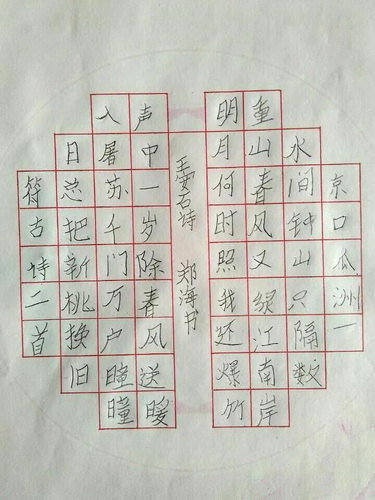 京口瓜洲一
水间钟山只隔数
重山春风又绿江南岸
明月何时照我还爆竹
王安石诗 郑海书
声中一岁除春风送暖
入暑苏千门万户瞳曈
日总把新桃换旧
符古诗二首